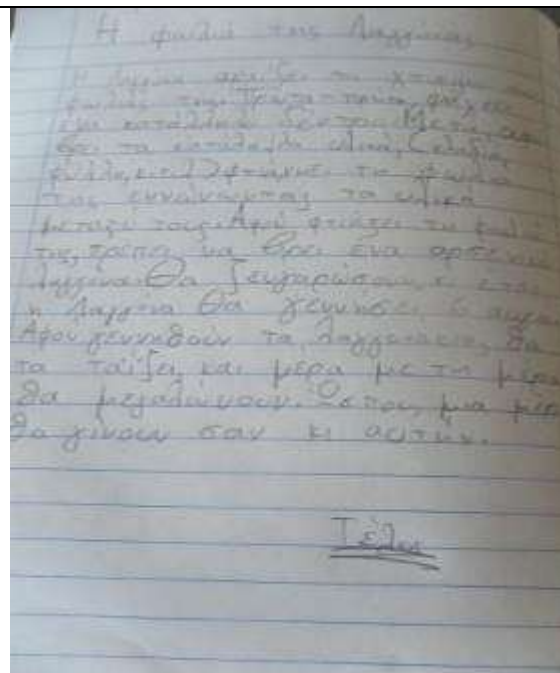 Η φωλιά της Λαγγίνας
Η Λαγγίνα αρχίζει το χτίσιμο
φωλιάς της. Πρώτα-πρώτα, ψάχνει
ένα κατάλληλο δέντρο. Μετά, αφού
βρει τα κατάλληλα υλικά,
φύλλα, φτιάχνει τη φωλιά
της ενώνοντας τα υλικά
μεταξύ τους. Αφού φτιάξει τη φωλιά
της, πρέπει να βρει ένα αρσενικό
Λαγγίνα. Θα ζευγαρώσουν κι έτσι
η Λαγγίνα θα γεννήσει 6 αυγά.
Αφου γεννηθούν τα, θα
τα ταΐζει και μέρα με τη μέρα
θα μεγαλώνουν. Ωσπου, μια μέρα
θα γίνουν σαν κι αυτήν.
Τέλος